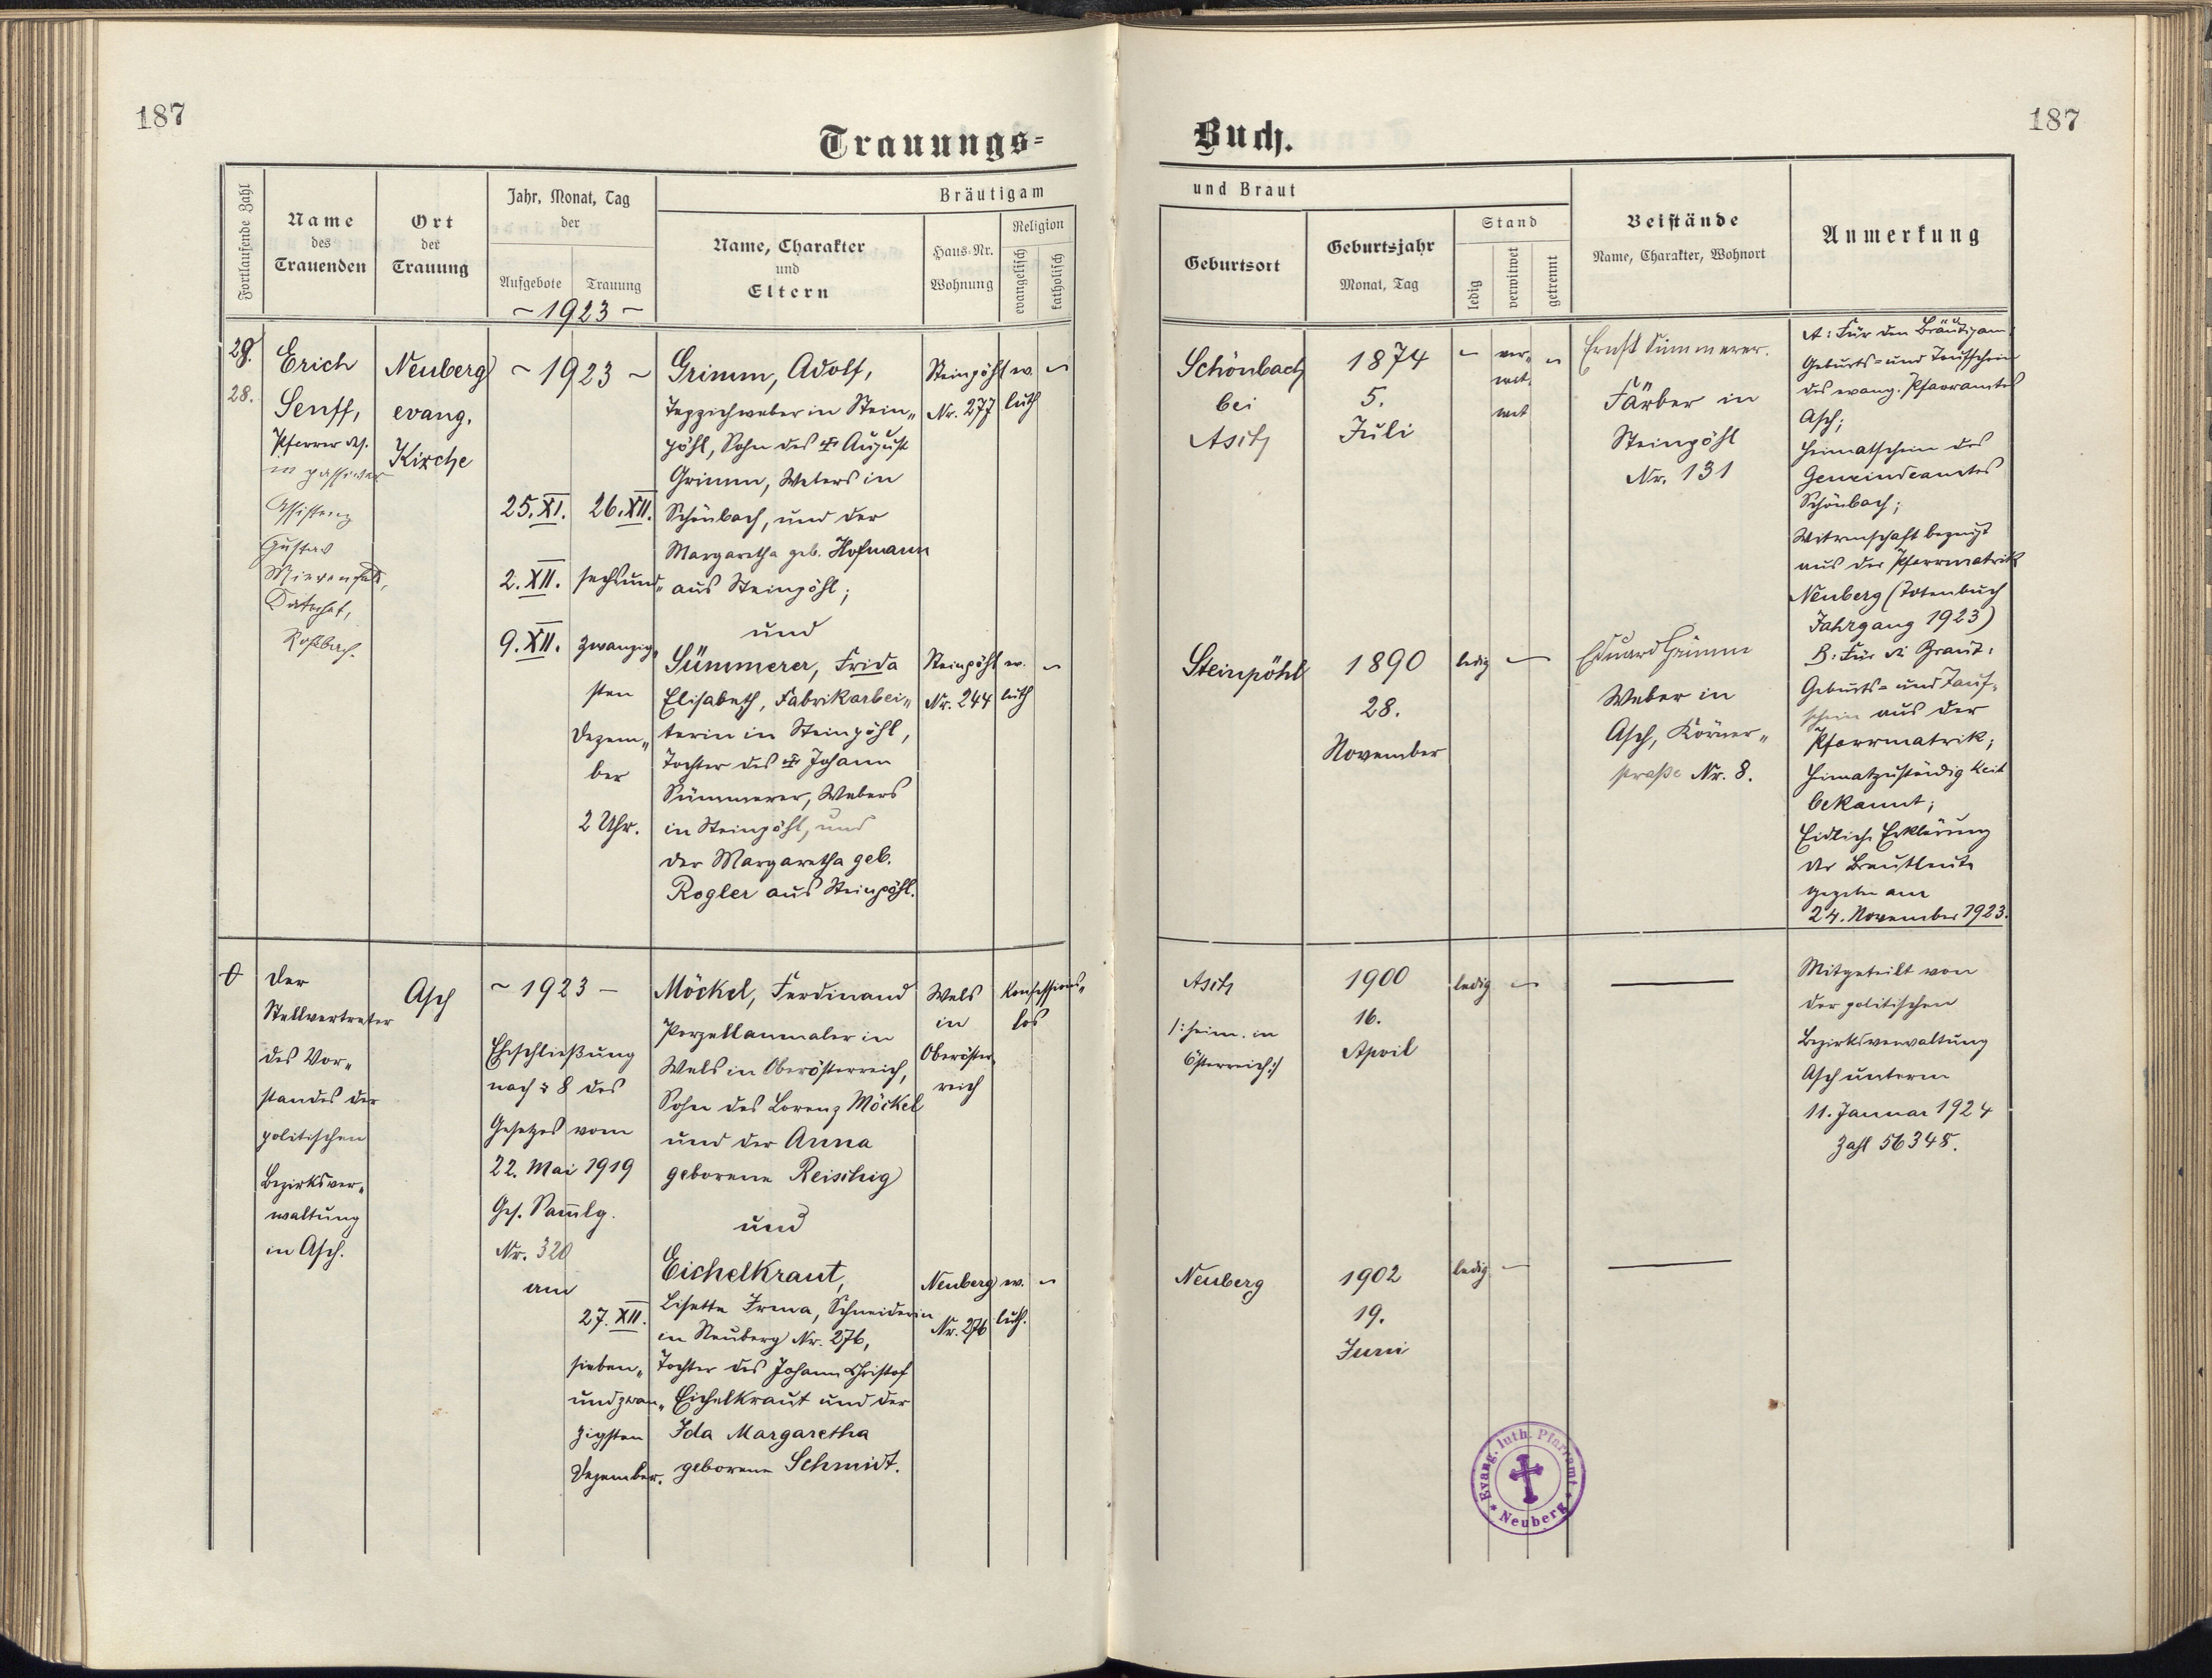 187
187
Trauungs=
Buch.
Fortlaufende Zahl
Name
des
Trauenden
Ort
der
Trauung
Jahr, Monat, Tag
der
Aufgebote
Trauung
~ 1923 ~
Bräutigam
Name, Charakter
und
Eltern
Haus-Nr.
Wohnung
Religion
evangelisch
katholisch
und Braut
Geburtsort
Geburtsjahr
Monat, Tag
Stand
ledig
verwitwet
getrennt
Beistände
Name, Charakter, Wohnort
Anmerkung
29.
28.
Erich
Senff,
Pfarrer
in passiver
Assistenz
Gustav
Katechet,
Roßbach.
Neuberg
evang.
Kirche
~ 1923 ~
25. XI.
2. XII.
9. XII.
26. XII.
sechsund„
zwanzig„
sten
Dezem„
ber
2 Uhr.
Grimm, Adolf,
Teppichweber in Stein„
pöhl, Sohn des August
Grimm, Webers in
Schönbach, und der
Margaretha geb. Hofmann
aus Steinpöhl;
und
Sümmerer, Frida
Elisabeth, Fabrikarbei„
terin in Steinpöhl,
Tochter des Johann
Sümmerer, Webers
in Steinpöhl, und
der Margaretha geb.
Rogler aus Steinpöhl.
Steinpöhl
Nr. 277
ev.
luth
Steinpöhl
Nr. 244
ev.
luth
Schönbach
bei
Asch
1874
5.
Juli
ver„
wit„
wet
Ernst Sümmerer.
Färber in
Steinpöhl
Nr. 131
Steinpöhl
1890
28.
November
ledig
Eduard Grimm
Weber in
Asch, Körner„
straße Nr. 8.
A: Für den Bräutigam:
Geburts= und Taufschein
des evang. Pfarramtes
Asch;
Heimatschein des
Gemeindeamtes
Schönbach;
Witwenschaft bezeugt
aus der Pfarrmatrik
Neuberg (Totenbuch
Jahrgang 1923)
B: Für die Braut:
Geburts= und Tauf„
schein aus der
Pfarrmatrik;
Heimatzuständigkeit
bekannt;
Eidliche Erklärung
der Brautleute
gegeben am
24. November 1923.
0
Der
Stellvertreter
des Vor„
standes der
politischen
Bezirksver„
waltung
in Asch.
Asch
~ 1923 –
Eheschließung
nach § 8 des
Gesetzes vom
22. Mai 1919
Ges. Sam̅lg.
Nr. 320
am
27. XII.
sieben„
undzwan„
zigsten
Dezember.
Möckel, Ferdinand
Porzellanmaler in
Wels in Oberösterreich,
Sohn des Lorenz Möckel
und der Anna
geborene Reischig
und
Eichelkraut,
Lisette Irma, Schneiderin
in Neuberg Nr. 276,
Tochter des Johann Christof
Eichelkraut und der
Ida Margaretha
geborene Schmidt.
Wels
in
Oberöster„
reich
Konfessions„
los
Neuberg
Nr. 276
ev.
luth.
Asch
/: heim. in
Österreich :/
1900
16.
April
ledig
Neuberg
1902
19.
Juni
ledig
Mitgeteilt von
der politischen
Bezirksverwaltung
Asch unterm
11. Januar 1924
Zahl 56348.
Evang. luth. Pfarramt
* Neuberg *